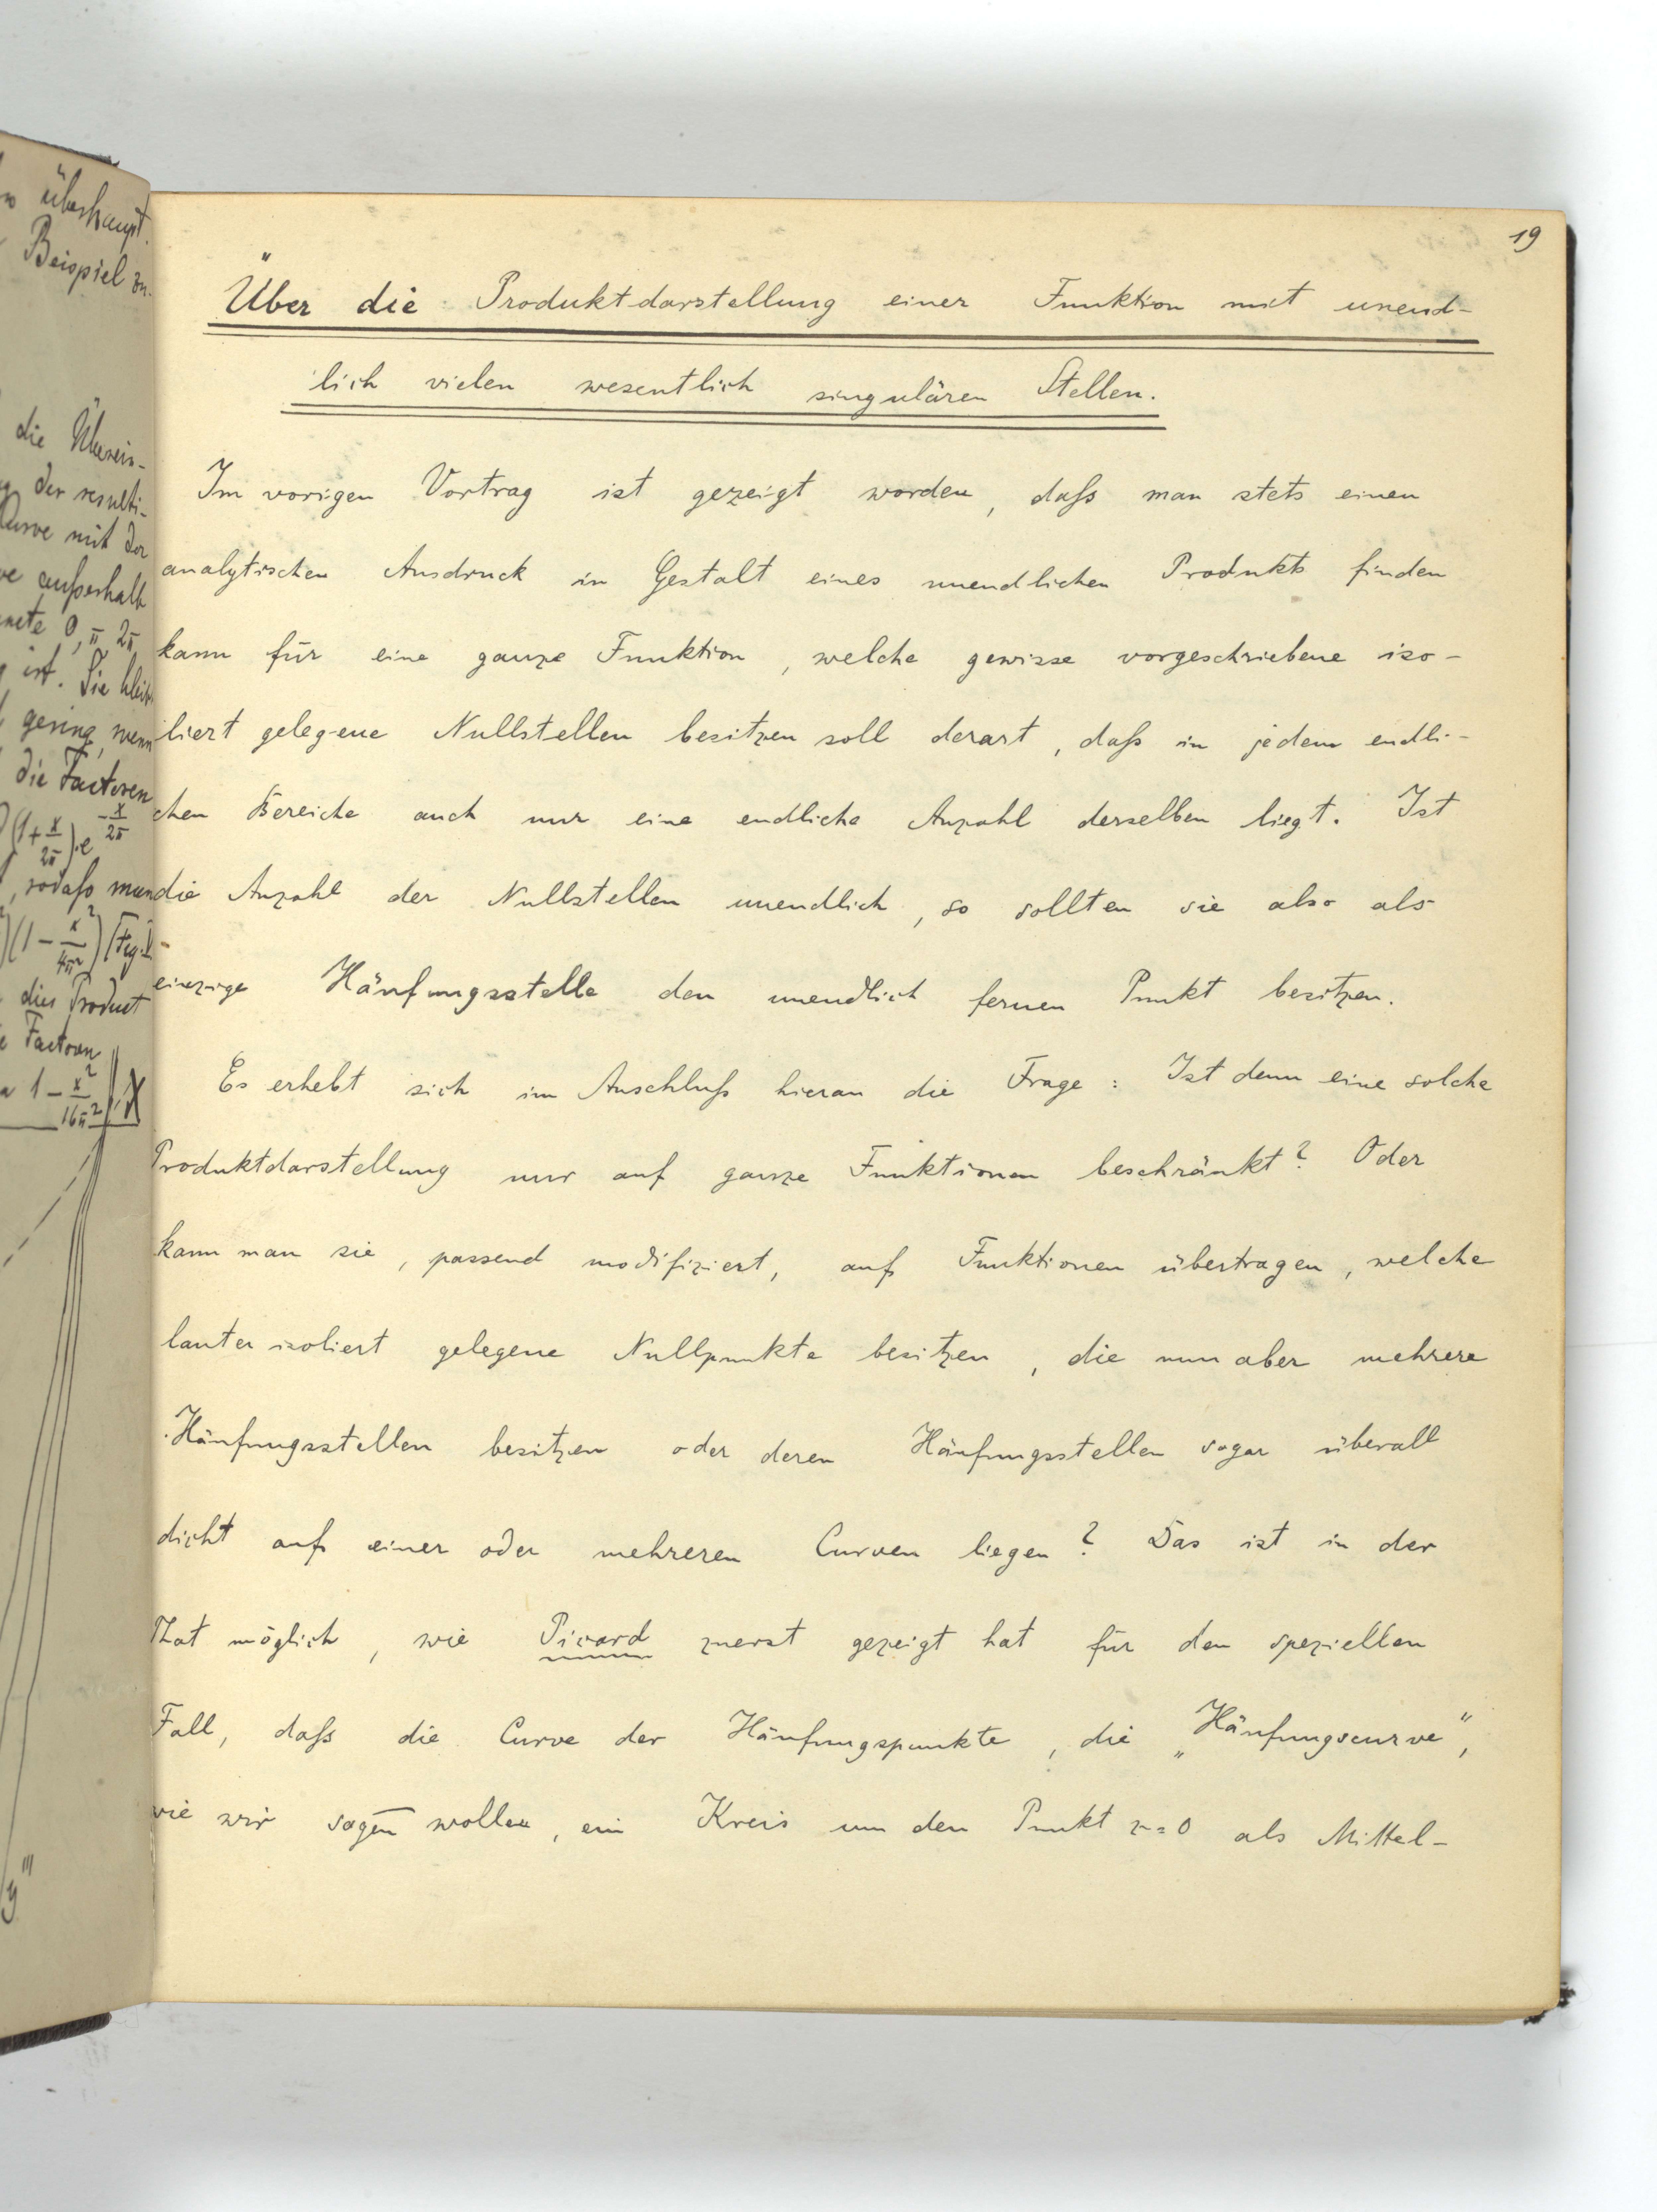 19
Über die Produktdarstellung einer Funktion mit unend-
lich vielen wesentlich singulären Stellen.
Im vorigen Vortrag ist gezeigt worden, daſs man stets einen
analytischen Ausdruck in Gestalt eines unendlichen Produkts finden
kann für eine ganze Funktion, welche gewisse vorgeschriebene iso-
liert gelegene Nullstellen besitzen soll derart, daſs in jedem endli-
chen Bereiche auch nur eine endliche Anzahl derselben liegt. Ist
die Anzahl der Nullstellen unendlich, so sollten sie also als
einzige Häufungsstelle den unendlich fernen Punkt besitzen.
Es erhebt sich im Anschluſs hieran die Frage: Ist denn eine solche
Produktdarstellung nur auf ganze Funktionen beschränkt? Oder
kann man sie, passend modifiziert, auf Funktionen übertragen, welche
lauter isoliert gelegene Nullpunkte besitzen, die nun aber mehrere
Häufungsstellen besitzen oder deren Häufungsstellen sogar überall
dicht auf einer oder mehreren Curven liegen? Das ist in der
That möglich, wie Picard zuerst gezeigt hat für den speziellen
Fall, daſs die Curve der Häufungspunkte, die „Häufungscurve“,
wie wir sagen wollen, ein Kreis um den Punkt z=0 als Mittel-
überhaupt.
Beispiel
die Überein-
der resulti-
mit der
auſserhalb
0, π, 2π
ist. Sie
gering, wenn
die Factoren
(1+x/2π).e^-x/2π
, sodaſs man
(1-x²/4π²)
dies Product
Factoren
1-x²/16π²